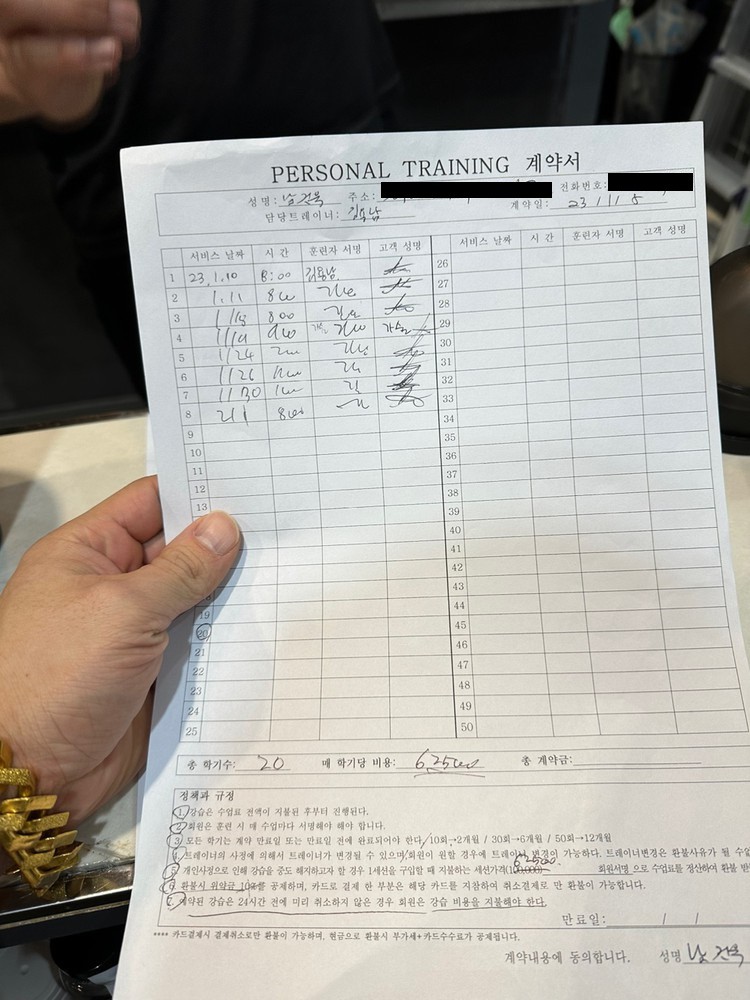 PERSONAL TRAINING 계약서
성명: 남건욱 주소: 전화번호:
담당트레이너: 김용남 계약일: 23 1 / 5
서비스 날짜 시 간 훈련자 서명 고객 성명 서비스 날짜 시 간 훈련자 서명 고객 성명
1 23.1.10 8:00 김용남 26
2 1.11 27
3 1/18 800 28
4 1/19 29
5 1/24 30
6 1/26 31
7 1/30 32
8 2/1 33
9 34
10 35
11 36
12 37
13 38
39
40
41
42
43
19 44
20 45
21 46
22 47
23 48
24 49
25 50
총 학기수: 20 매 학기당 비용: 62500 총 계약금:
정책과 규정
1. 강습은 수업료 전액이 지불된 후부터 진행된다.
2. 회원은 훈련 시 매 수업마다 서명해야 해야 합니다.
3. 모든 학기는 계약 만료일 또는 만료일 전에 완료되어야 한다. 10회→2개월 / 30회→6개월 / 50회→12개월
4. 트레이너의 사정에 의해서 트레이너가 변경될 수 있으며/회원이 원할 경우에 트레이너 변경이 가능하다. 트레이너변경은 환불사유가 될 수없
62500
5. 개인사정으로 인해 강습을 중도 해지하고자 할 경우 1세션을 구입할 때 지불하는 세션가격( 회원서명 으로 수업료를 정산하여 환불
6. 환불시 위약금 10%를 공제하며, 카드로 결제 한 부분은 해당 카드를 지참하여 취소결제로 만 환불이 가능합니다.
7. 예약된 강습은 24시간 전에 미리 취소하지 않은 경우 회원은 강습 비용을 지불해야 한다.
만료일: / /
**** 카드결제시 결제취소로만 환불이 가능하며, 현금으로 환불시 부가세+카드수수료가 공제됩니다.
계약내용에 동의합니다. 성명 남건욱